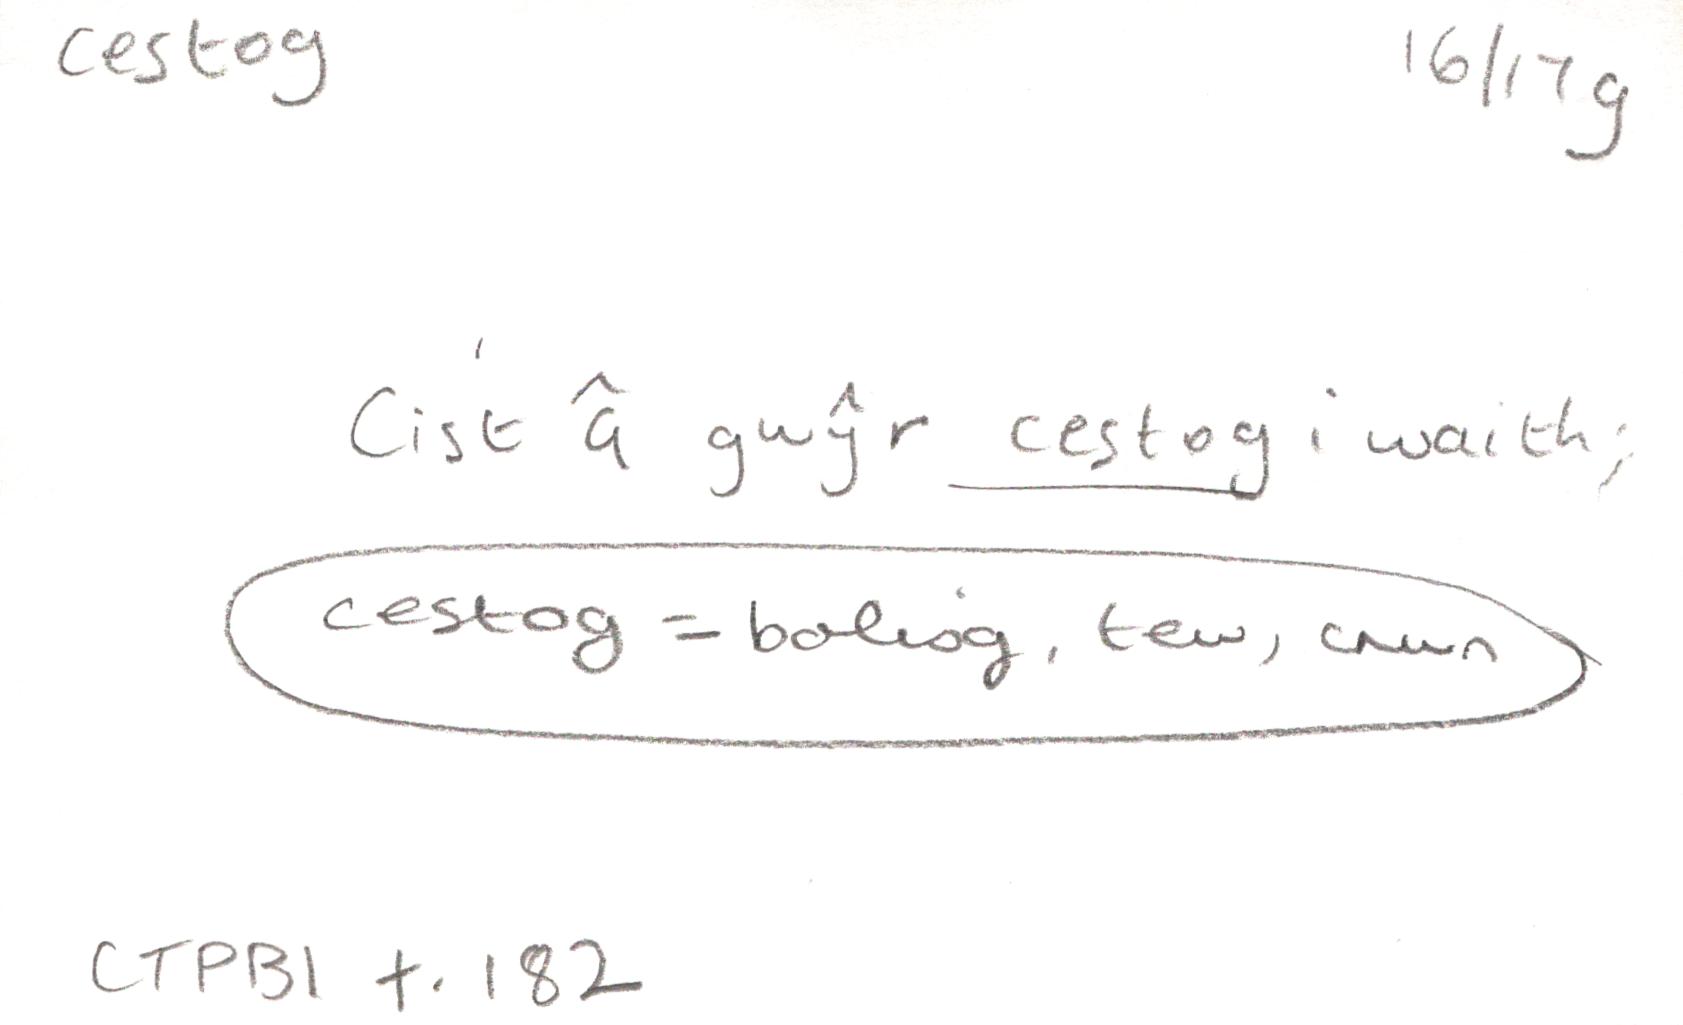 cestog 16/17g
Cist â gwŷr cestog i waith;
cestog = boliog, tew, crwn
CTPB1 t. 182